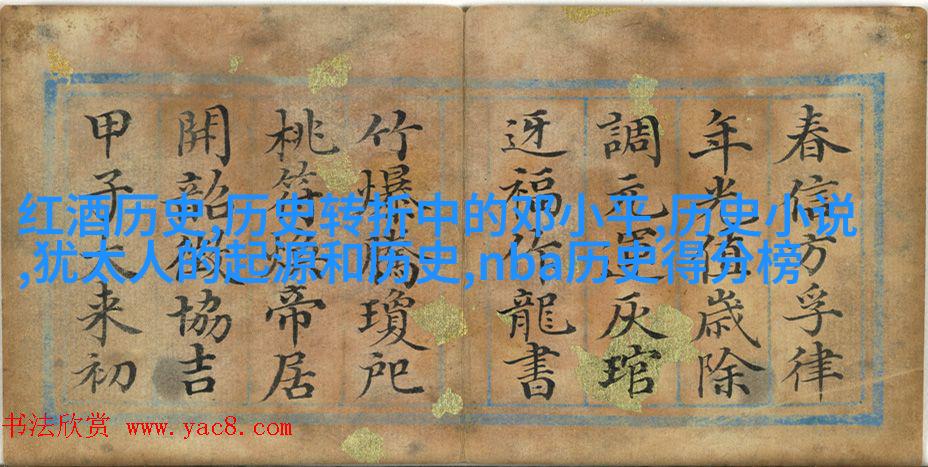 春信方孚律
年光值歲除
調元運灰琯
迓福作龍書
竹爆瓊
桃符煥帝居
開韶徵協吉
甲子来初
红酒历史,历史转折中的邓小平,历史小说
,犹太人的起源和历史,nba历史得分榜
书法欣赏 www.yac8.com